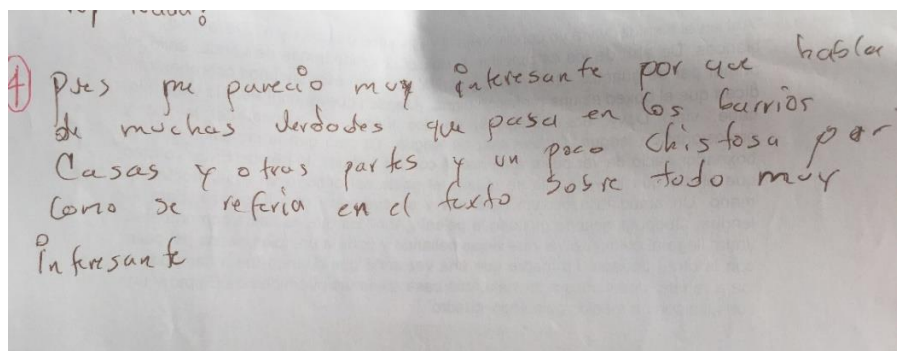 4) Pues me parecio muy interesante por que habla
de muchas verdades que pasa en los barrios
Casas y otras partes y un poco chistosa por
Como se referia en el texto sobre todo muy
interesante